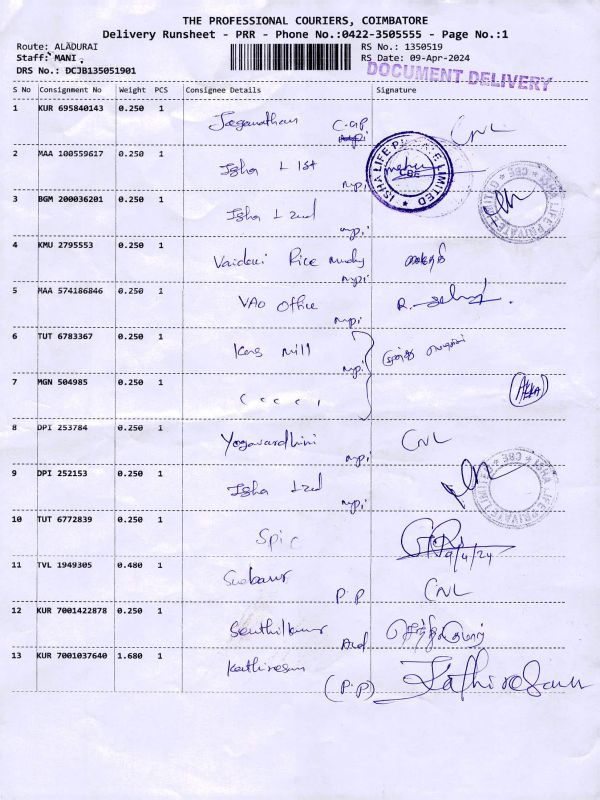 THE PROFESSIONAL COURIERS, COIMBATORE
Delivery Runsheet - PRR - Phone No.:0422-3505555 - Page No.:1
Route: ALADURAI RS No.: 1350519
Staff: MANI . RS Date: 09-Apr-2024
DRS No.: DCJB135051901 DOCUMENT DELIVERY
S No Consignment No Weight PCS Consignee Details Signature
1 KUR 695840143 0.250 1 Jaganathan CNL
2 MAA 100559617 0.250 1 Isha L 1st mpi
ISHA LIFE PRIVATE LIMITED CBE
3 BGM 200036201 0.250 1 Isha L 2nd mpi
ISHA LIFE PRIVATE LIMITED * CBE *
4 KMU 2795553 0.250 1 Rice mpi
5 MAA 574186846 0.250 1 VAO office mpi R.
6 TUT 6783367 0.250 1 mill mpi
7 MGN 504985 0.250 1
8 DPI 253784 0.250 1 Yogavardhini mpi CNL
9 DPI 252153 0.250 1 Isha L 2nd mpi
ISHA LIFE PRIVATE LIMITED * CBE *
10 TUT 6772839 0.250 1 Spic 9/4/24
11 TVL 1949305 0.480 1 P.P CNL
12 KUR 7001422878 0.250 1 Senthilkumar செந்தில்குமார்
13 KUR 7001037640 1.680 1 Kathiresan (P.P) Kathiresan